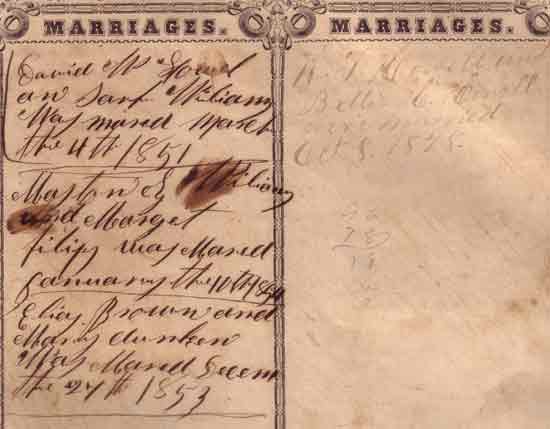 MARRIAGES.
David W Howel
an Sarah Wiliams
Was mared March
the 4th 1851
Martin Wiliams
and Marget
filips was Mared
January the 10th
Elias Brown and
Mary dunken
Was Mared Decem
the 24th 1853
MARRIAGES.
Belle C
were married
Oct 8. 1878.